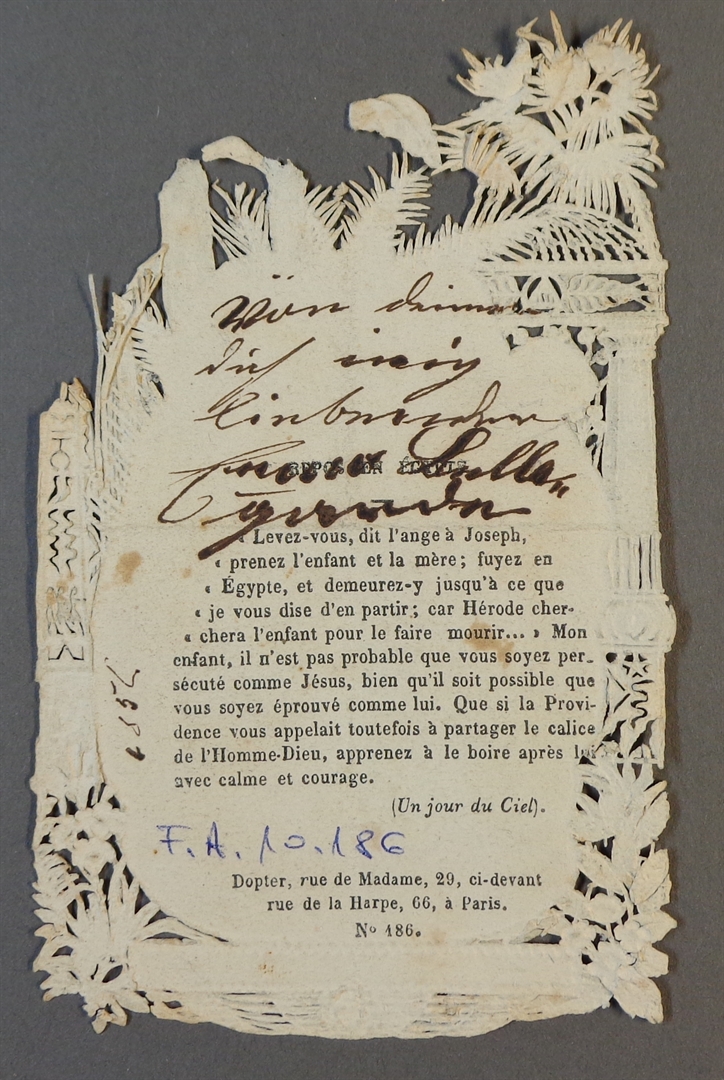 Von deiner
dich innig
liebenden
REPOS EN ÉGYPTE.
« Levez-vous, dit l'ange à Joseph,
« prenez l'enfant et la mère; fuyez en
« Égypte, et demeurez-y jusqu'à ce que
« je vous dise d'en partir; car Hérode cher-
« chera l'enfant pour le faire mourir... » Mon
enfant, il n'est pas probable que vous soyez per-
sécuté comme Jésus, bien qu'il soit possible que
vous soyez éprouvé comme lui. Que si la Provi-
dence vous appelait toutefois à partager le calice
de l'Homme-Dieu, apprenez à le boire après lui
avec calme et courage.
(Un jour du Ciel).
F.A.10.186
Dopter, rue de Madame, 29, ci-devant
rue de la Harpe, 66, à Paris.
No 186.